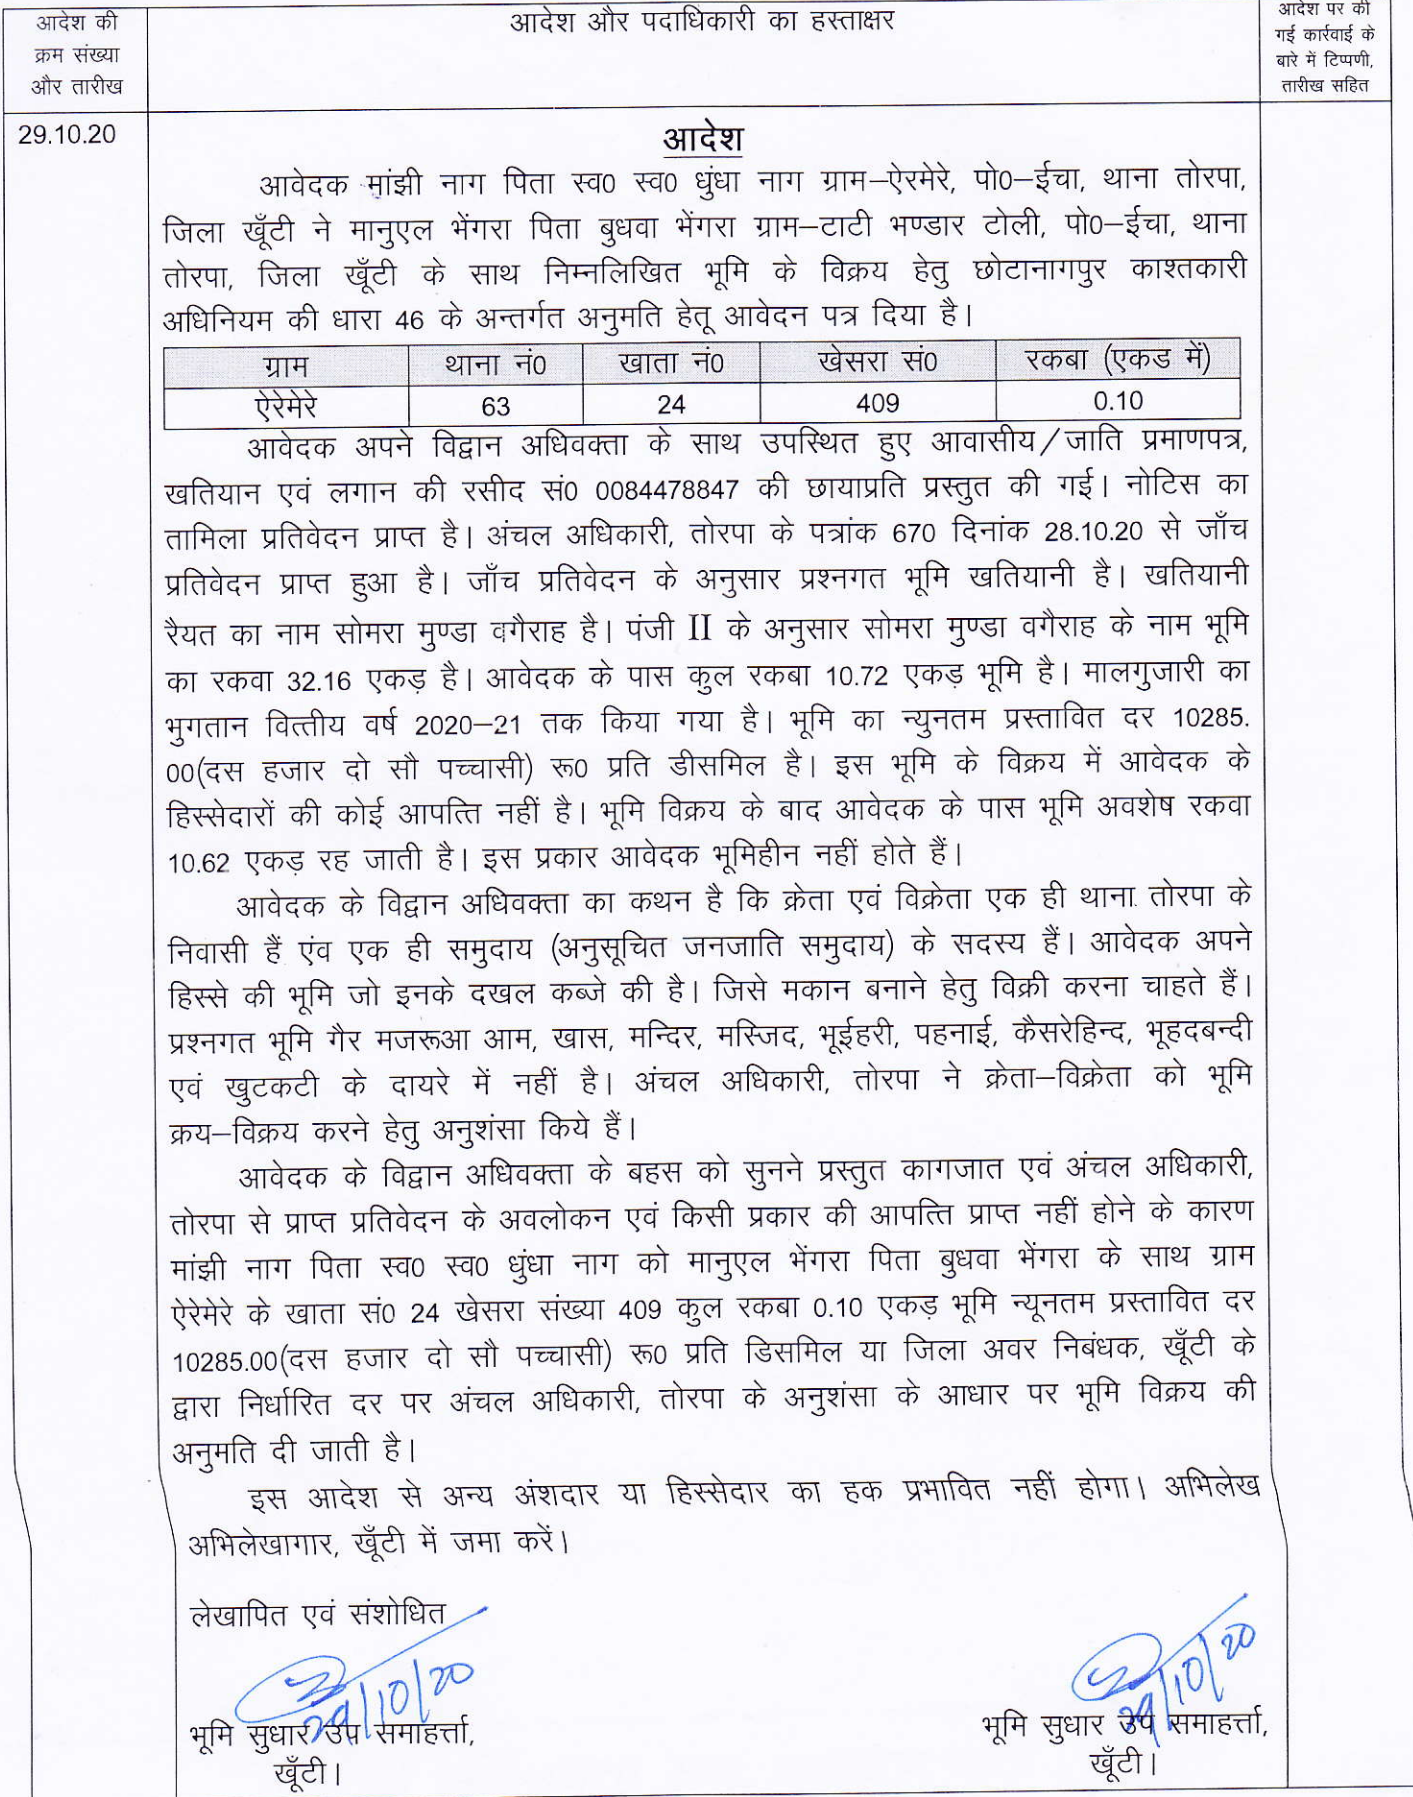 आदेश की
क्रम संख्या
और तारीख
आदेश और पदाधिकारी का हस्ताक्षर
आदेश पर की
गई कार्रवाई के
बारे में टिप्पणी,
तारीख सहित
29.10.20
आदेश
आवेदक मांझी नाग पिता स्व0 स्व0 धुंधा नाग ग्राम–ऐरमेरे, पो0–ईचा, थाना तोरपा,
जिला खूँटी ने मानुएल भेंगरा पिता बुधवा भेंगरा ग्राम–टाटी भण्डार टोली, पो0–ईचा, थाना
तोरपा, जिला खूँटी के साथ निम्नलिखित भूमि के विक्रय हेतु छोटानागपुर काश्तकारी
अधिनियम की धारा 46 के अन्तर्गत अनुमति हेतू आवेदन पत्र दिया है।
ग्राम थाना नं0 खाता नं0 खेसरा सं0 रकबा (एकड में)
ऐरेमेरे 63 24 409 0.10
आवेदक अपने विद्वान अधिवक्ता के साथ उपस्थित हुए आवासीय/जाति प्रमाणपत्र,
खतियान एवं लगान की रसीद सं0 0084478847 की छायाप्रति प्रस्तुत की गई। नोटिस का
तामिला प्रतिवेदन प्राप्त है। अंचल अधिकारी, तोरपा के पत्रांक 670 दिनांक 28.10.20 से जाँच
प्रतिवेदन प्राप्त हुआ है। जाँच प्रतिवेदन के अनुसार प्रश्नगत भूमि खतियानी है। खतियानी
रैयत का नाम सोमरा मुण्डा वगैराह है। पंजी II के अनुसार सोमरा मुण्डा वगैराह के नाम भूमि
का रकवा 32.16 एकड़ है। आवेदक के पास कुल रकबा 10.72 एकड़ भूमि है। मालगुजारी का
भुगतान वित्तीय वर्ष 2020–21 तक किया गया है। भूमि का न्युनतम प्रस्तावित दर 10285.
00(दस हजार दो सौ पच्चासी) रू0 प्रति डीसमिल है। इस भूमि के विक्रय में आवेदक के
हिस्सेदारों की कोई आपत्ति नहीं है। भूमि विक्रय के बाद आवेदक के पास भूमि अवशेष रकवा
10.62 एकड़ रह जाती है। इस प्रकार आवेदक भूमिहीन नहीं होते हैं।
आवेदक के विद्वान अधिवक्ता का कथन है कि क्रेता एवं विक्रेता एक ही थाना तोरपा के
निवासी हैं एंव एक ही समुदाय (अनुसूचित जनजाति समुदाय) के सदस्य हैं। आवेदक अपने
हिस्से की भूमि जो इनके दखल कब्जे की है। जिसे मकान बनाने हेतु विक्री करना चाहते हैं।
प्रश्नगत भूमि गैर मजरूआ आम, खास, मन्दिर, मस्जिद, भूईहरी, पहनाई, कैसरेहिन्द, भूहदबन्दी
एवं खुटकटी के दायरे में नहीं है। अंचल अधिकारी, तोरपा ने क्रेता–विक्रेता को भूमि
क्रय–विक्रय करने हेतु अनुशंसा किये हैं।
आवेदक के विद्वान अधिवक्ता के बहस को सुनने प्रस्तुत कागजात एवं अंचल अधिकारी,
तोरपा से प्राप्त प्रतिवेदन के अवलोकन एवं किसी प्रकार की आपत्ति प्राप्त नहीं होने के कारण
मांझी नाग पिता स्व0 स्व0 धुंधा नाग को मानुएल भेंगरा पिता बुधवा भेंगरा के साथ ग्राम
ऐरेमेरे के खाता सं0 24 खेसरा संख्या 409 कुल रकबा 0.10 एकड़ भूमि न्यूनतम प्रस्तावित दर
10285.00(दस हजार दो सौ पच्चासी) रू0 प्रति डिसमिल या जिला अवर निबंधक, खूँटी के
द्वारा निर्धारित दर पर अंचल अधिकारी, तोरपा के अनुशंसा के आधार पर भूमि विक्रय की
अनुमति दी जाती है।
इस आदेश से अन्य अंशदार या हिस्सेदार का हक प्रभावित नहीं होगा। अभिलेख
अभिलेखागार, खूँटी में जमा करें।
लेखापित एवं संशोधित
29/10/20
29/10/20
भूमि सुधार उप समाहर्त्ता,
खूँटी।
भूमि सुधार उप समाहर्त्ता,
खूँटी।